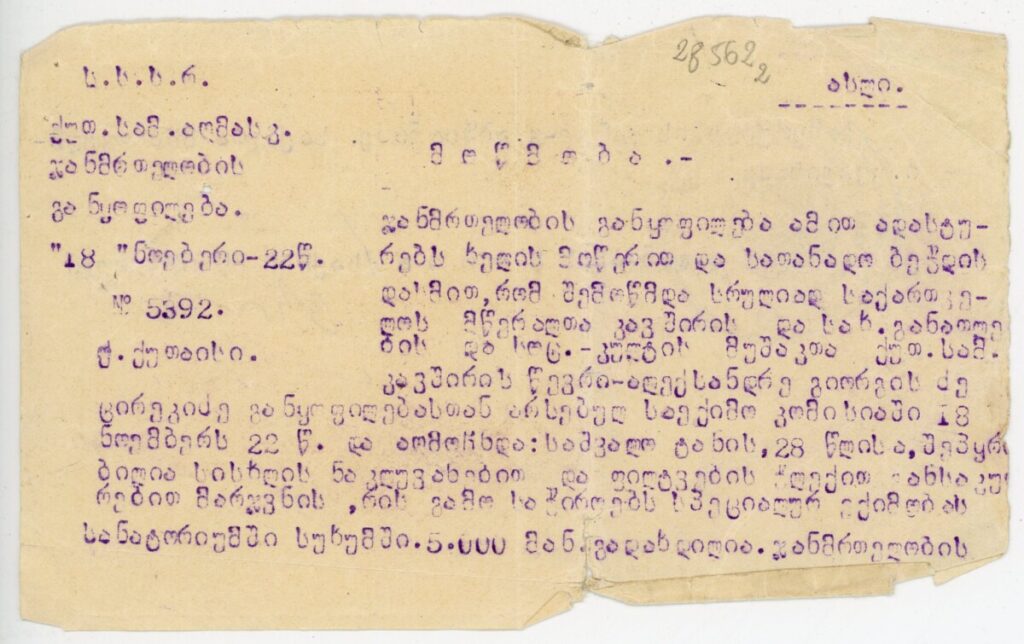 28562 2
ს.ს.ს.რ.
ასლი.
ქუთ.სამ.აღმასკ.
ჯანმრთელობის
განყოფილება.
მოწმობა.-
"18 "ნოებერი-22წ.
№ 5392.
ქ.ქუთაისი.
ჯანმრთელობის განყოფილება ამით ადასტუ-
რებს ხელის მოწერით და სათანადო ბეჭდის
დასმით,რომ შემოწმდა სრულიად საქართვე-
ლოს მწერალთა კავშირის და სახ.განათლე
ბის და სოც.-კულტის მუშაკთა ქუთ.სამ.
კავშირის წევრი-ალექსანდრე გიორგის ძე
ცირეკიძე განყოფილებასთან არსებულ საექიმო კომისიაში 18
ნოემბერს 22 წ. და აღმოჩნდა:საშვალო ტანის,28 წლისა,შეპყრო
ბილია სისხლის ნაკლუვანებით და ფილტვების ჭლექით განსაკუთ
რებით მარჯვნის ,რის გამო საჭიროებს სპეციალურ ექიმობას
სანატორიუმში სუხუმში.5.000 მან.გადახდილია.ჯანმრთელობის